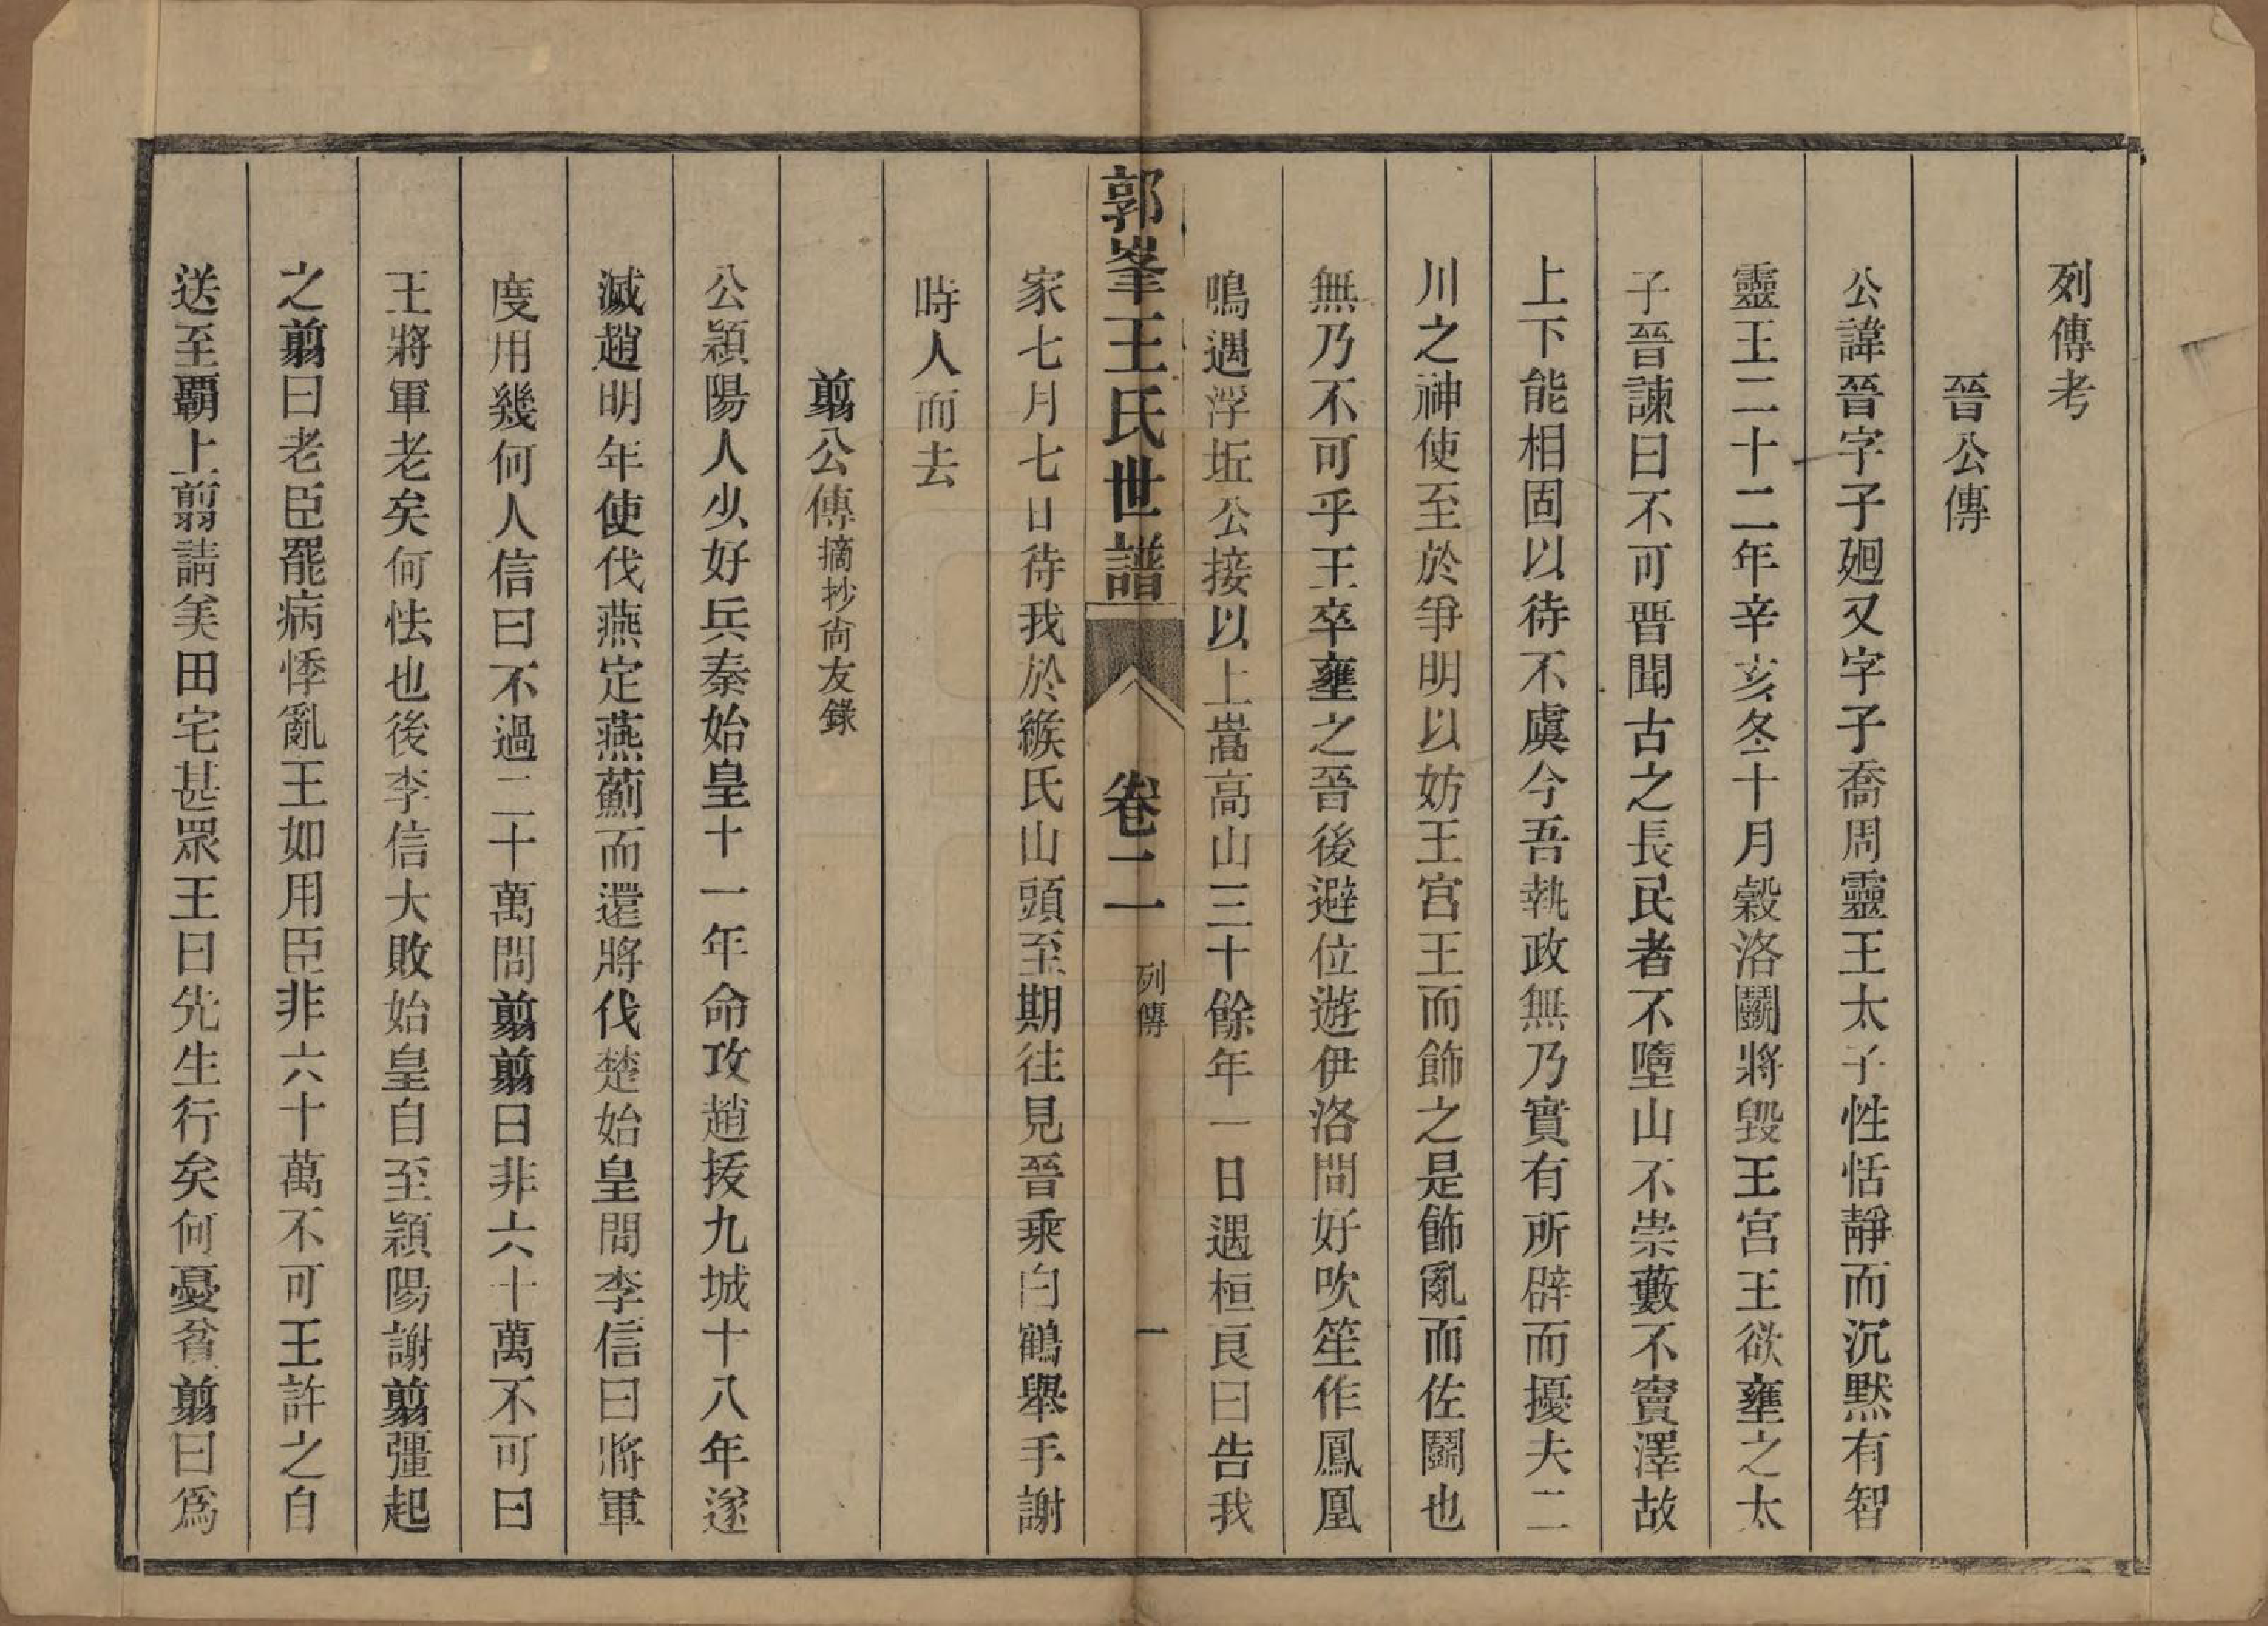 列傳考
晉公傳
公諱晉字子廻又字子喬周靈王太子性恬靜而沉默有智
靈王二十二年辛亥冬十月穀洛鬭將毀王宮王欲壅之太
子晉諫曰不可晉聞古之長民者不墮山不崇藪不竇澤故
上下能相固以待不虞今吾執政無乃實有所辟而擾夫二
川之神使至於爭明以妨王宮王而飾之是飾亂而佐鬭也
無乃不可乎王卒壅之晉後避位遊伊洛間好吹笙作鳳凰
鳴遇浮坵公接以上嵩高山三十餘年一日遇桓良曰告我
家七月七日待我於緱氏山頭至期往見晉乘白鶴舉手謝
時人而去
郭峯王氏世譜 卷二 列傳 一
翦公傳摘抄尙友錄
公潁陽人少好兵秦始皇十一年命攻趙拔九城十八年遂
滅趙明年使伐燕定燕薊而還將伐楚始皇問李信曰將軍
度用幾何人信曰不過二十萬問翦翦曰非六十萬不可曰
王將軍老矣何怯也後李信大敗始皇自至潁陽謝翦彊起
之翦曰老臣罷病悸亂王如用臣非六十萬不可王許之自
送至覇上翦請美田宅甚眾王曰先生行矣何憂貧翦曰爲